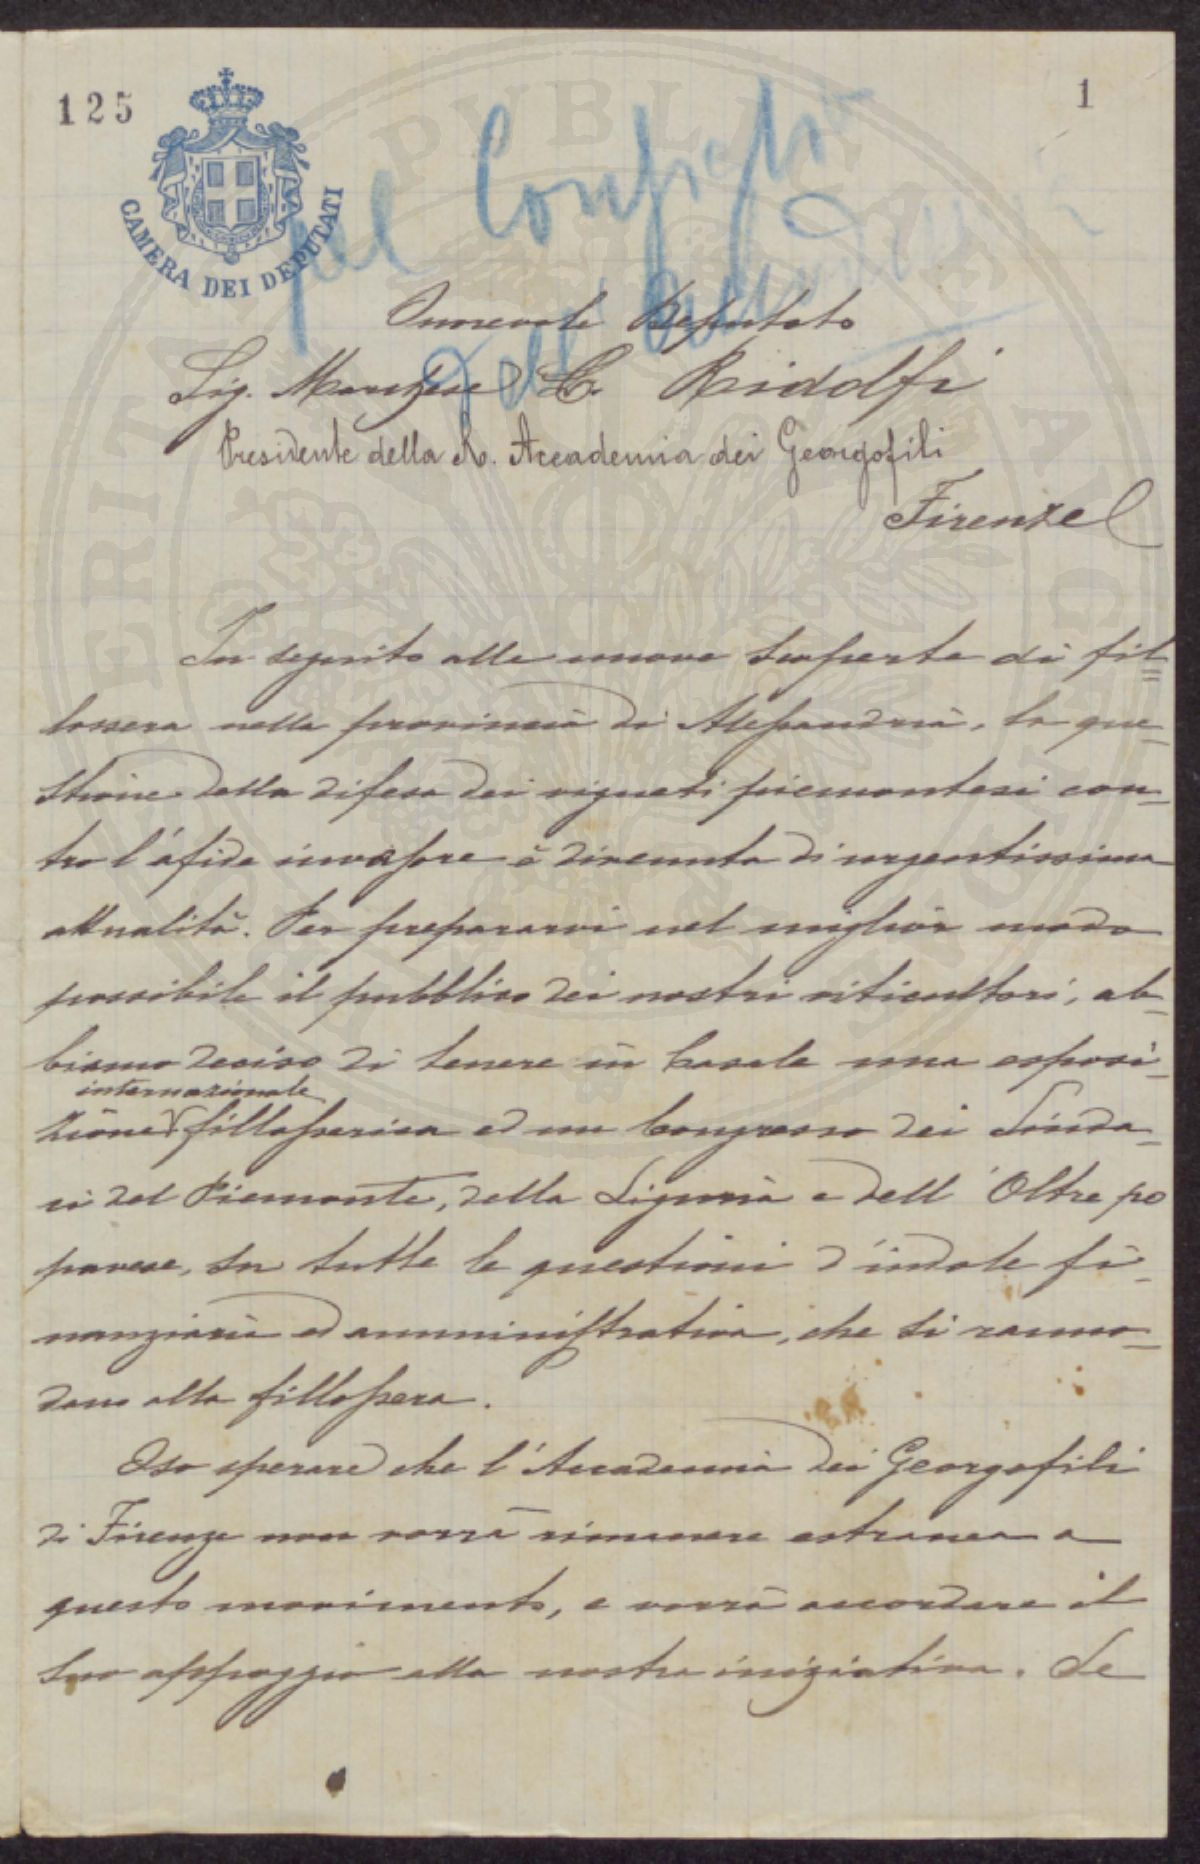 125
1
CAMERA DEI DEPUTATI
pel Consiglio
dell'Accademia
Onorevole Deputato
Sig. Marchese C. Ridolfi
Presidente della R. Accademia dei Georgofili
Firenze
In seguito alle nuove scoperte di fil=
lossera nella provincia di Alessandria, la que-
stione della difesa dei vigneti piemontesi con-
tro l'afide invasore è divenuta di urgentissima
attualità. Per prepararvi nel miglior modo
possibile il pubblico dei nostri viticultori, ab-
biamo deciso di tenere in Casale una esposi-
internazionale
zione fillosserica ed un Congresso dei Sinda-
ci del Piemonte, della Liguria e dell'Oltre po
pavese, su tutte le questioni d'indole fi-
nanziaria ed amministrativa, che si ranno-
dano alla fillossera.
Oso sperare che l'Accademia dei Georgofili
di Firenze non vorrà rimanere estranea a
questo movimento, e vorrà accordare il
suo appoggio alla nostra iniziativa. Se